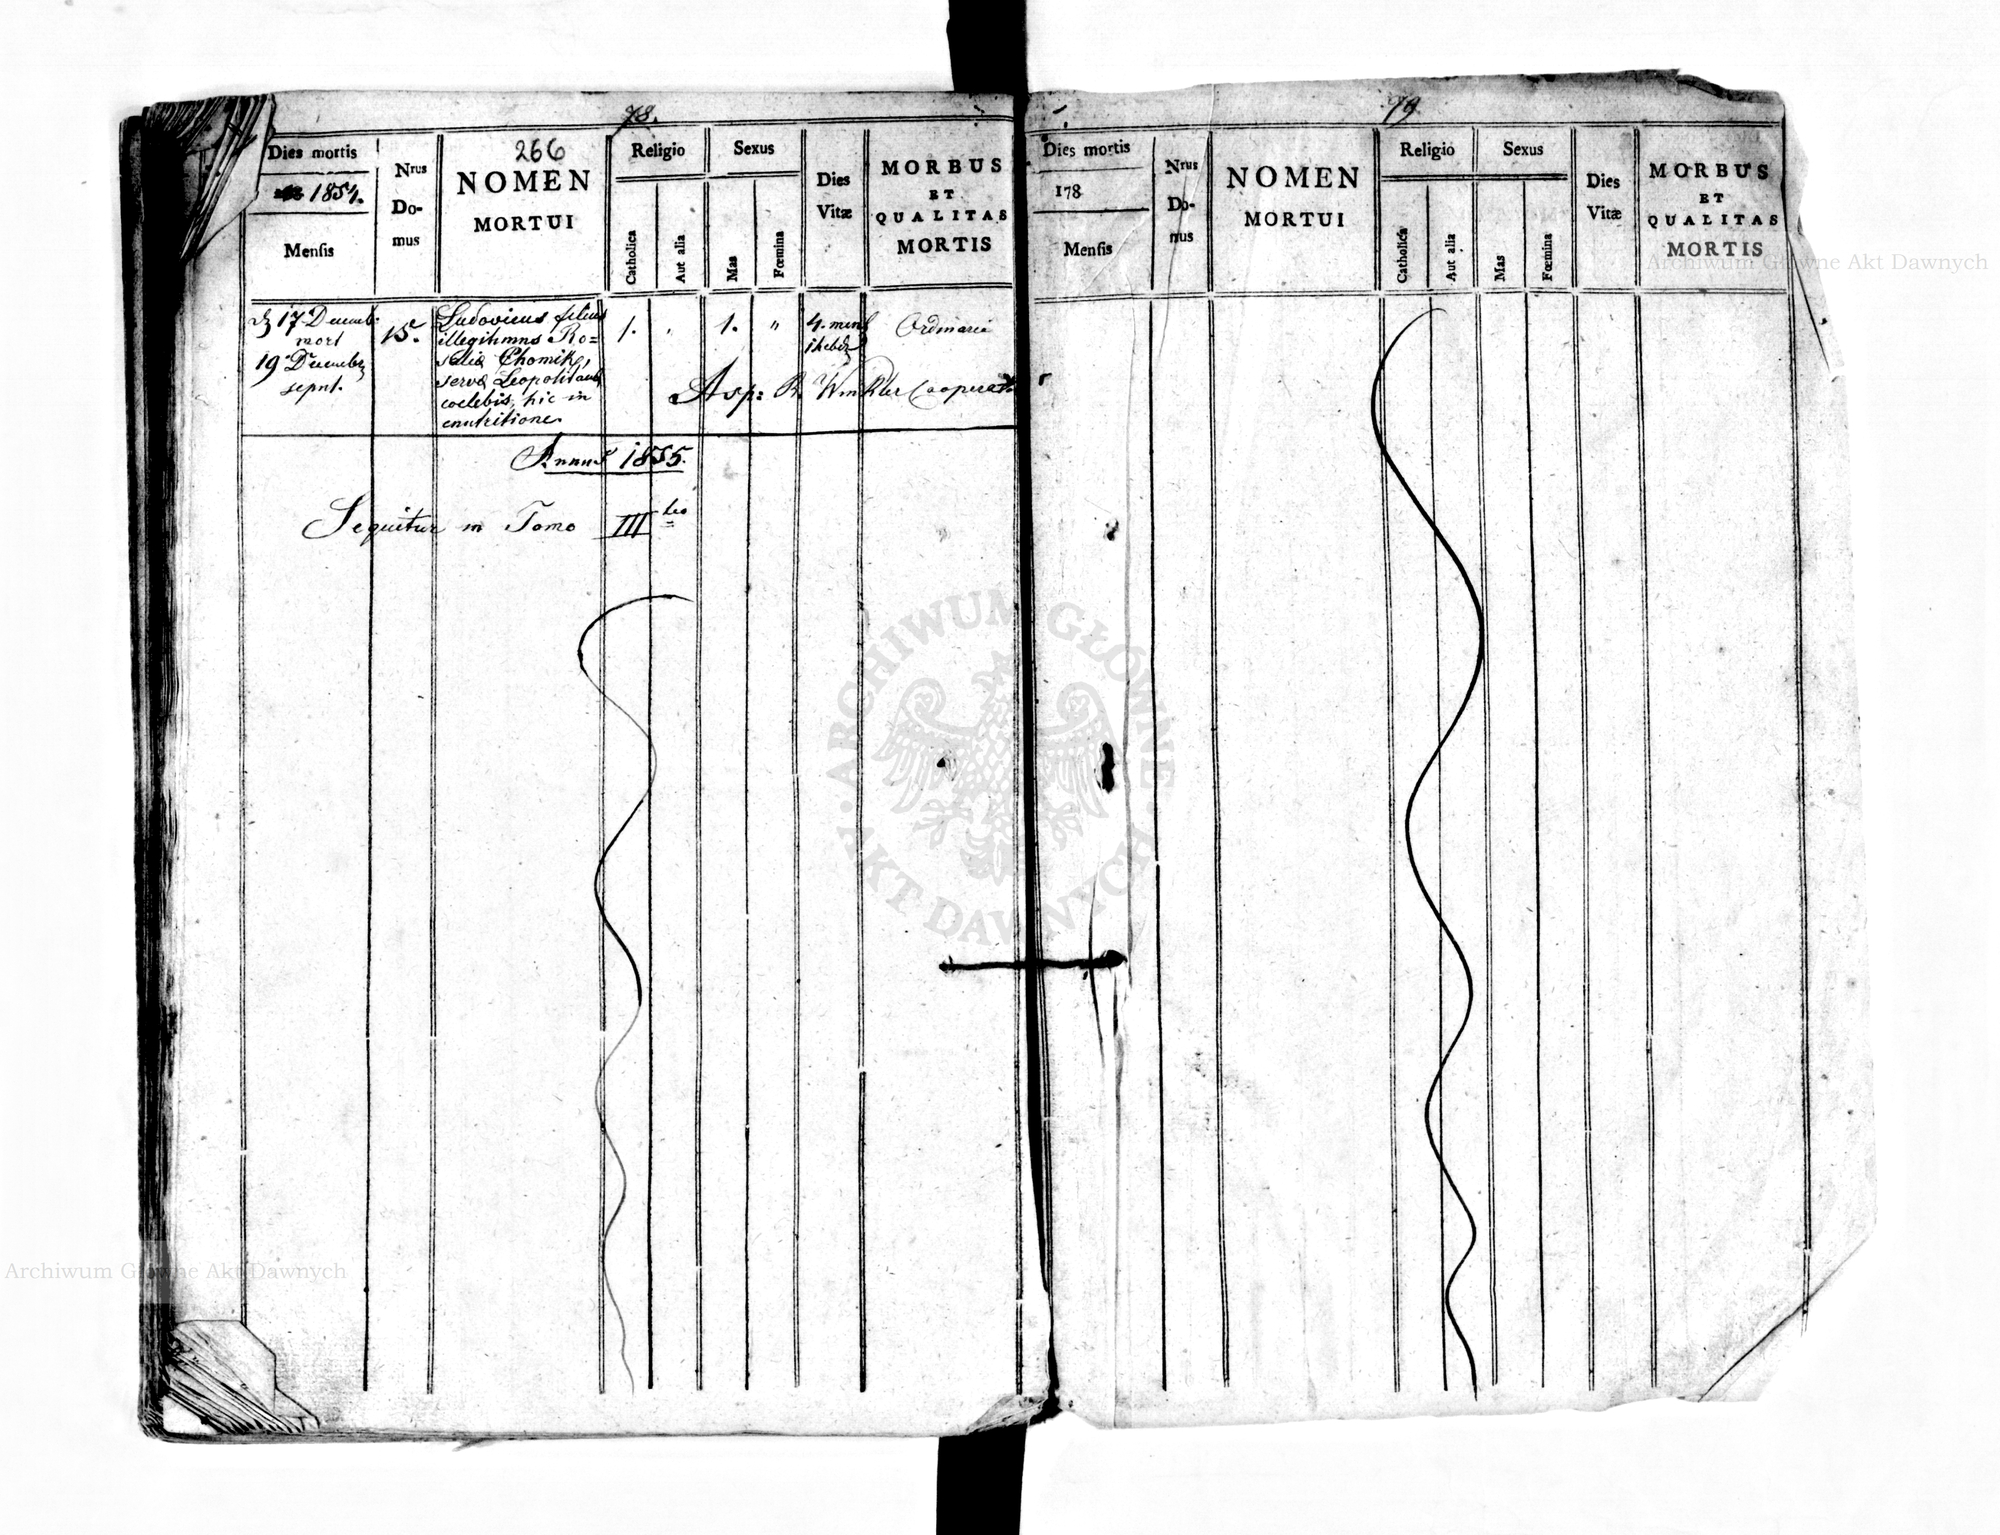 78.
266
Dies mortis
1854.
Mensis
Nrus
Do-
mus
NOMEN
MORTUI
Religio
Catholica
Aut alia
Sexus
Mas
Fœmina
Dies
Vitæ
MORBUS
ET
QUALITAS
MORTIS
17 Decemb.
mort
19 Decembr
sepult.
15.
Ludovicus filius
illegitimus Ro=
saliæ Chomik,
servæ Leopolitanæ
coelebis, hic in
enutritione.
1.
"
1.
"
4. mens
1 hebd
Ordinaria
Asp: R. Winkler Cooperator
Annus 1855.
Sequitur in Tomo III tio
79
Dies mortis
178
Mensis
Nrus
Do-
mus
NOMEN
MORTUI
Religio
Catholica
Aut alia
Sexus
Mas
Fœmina
Dies
Vitæ
MORBUS
ET
QUALITAS
MORTIS
Archiwum Główne Akt Dawnych
ARCHIWUM GŁÓWNE AKT DAWNYCH
Archiwum Główne Akt Dawnych